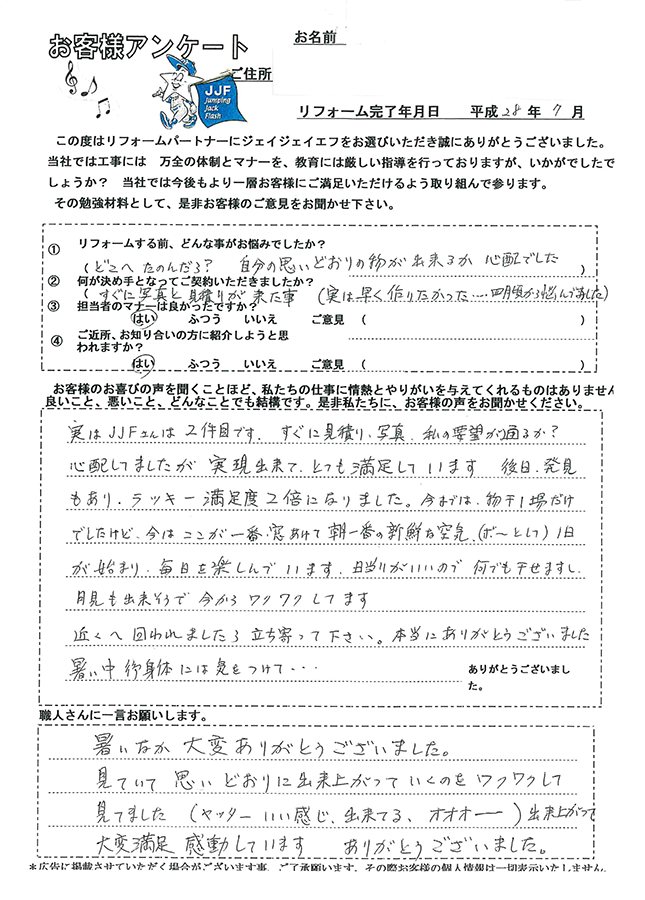 お客様アンケート
お名前
ご住所
JJF
Jumping
Jack
Flash
リフォーム完了年月日 平成 28 年 7 月
この度はリフォームパートナーにジェイジェイエフをお選びいただき誠にありがとうございました。
当社では工事には 万全の体制とマナーを、教育には厳しい指導を行っておりますが、いかがでしたで
しょうか? 当社では今後もより一層お客様にご満足いただけるよう取り組んで参ります。
その勉強材料として、是非お客様のご意見をお聞かせ下さい。
① リフォームする前、どんな事がお悩みでしたか?
( どこへ たのんだら? 自分の思いどおりの物が出来るか 心配でした )
② 何が決め手となってご契約いただきましたか?
( すぐに写真と見積りが来た事 (実は早く作りたかった…四月頃から悩んでました)
③ 担当者のマナーは良かったですか?
はい ふつう いいえ ご意見 ( )
④ ご近所、お知り合いの方に紹介しようと思
われますか?
はい ふつう いいえ ご意見 ( )
お客様のお喜びの声を聞くことほど、私たちの仕事に情熱とやりがいを与えてくれるものはありません
良いこと、悪いこと、どんなことでも結構です。是非私たちに、お客様の声をお聞かせください。
実は JJFさんは 2件目です. すぐに見積り、写真、私の要望が通るか?
心配してましたが 実現出来て、とても満足しています 後日、発見
もあり、ラッキー 満足度2倍になりました。今までは、物干し場だけ
でしたけど、今は ここが一番、窓あけて 朝一番の新鮮な空気、(ボ〜として) 1日
が始まり、毎日を楽しんでいます、日当りがいいので 何でも干せますし、
月見も出来そうで 今から ワクワクしてます
近くへ 回われましたら 立ち寄って下さい。本当にありがとうございました
暑い中 御身体には気をつけて・・・
ありがとうございまし
た。
職人さんに一言お願いします。
暑いなか 大変ありがとうございました。
見ていて 思いどおりに出来上がっていくのを ワクワクして
見てました (ヤッター いい感じ、出来てる、オオオーー) 出来上がって
大変満足 感動しています ありがとうございました。
*広告に掲載させていただく場合がございます事、ご了承願います。その際お客様の個人情報は一切表示いたしません。